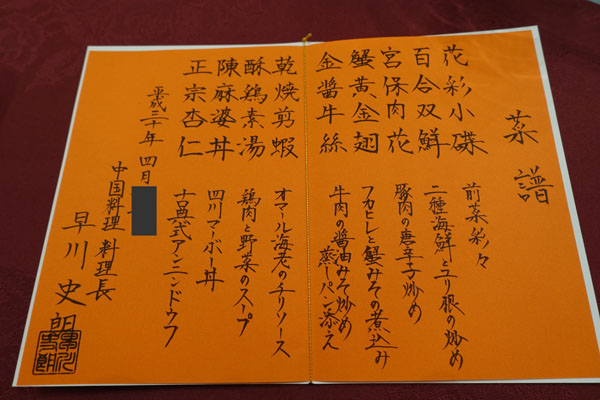 菜譜
花彩小碟
百合双鮮
宮保肉花
蟹黄金翅
金醤牛絲
前菜彩々
二種海鮮とユリ根の炒め
豚肉の唐辛子炒め
フカヒレと蟹みその煮込み
牛肉の醤油みそ炒め
蒸しパン添え
乾焼剪蝦
酥鶏素湯
陳麻婆丼
正宗杏仁
オマール海老のチリソース
鶏肉と野菜のスープ
四川マーボー丼
古典式アンニンドウフ
平成三十年 四月
中国料理 料理長
早川史朗